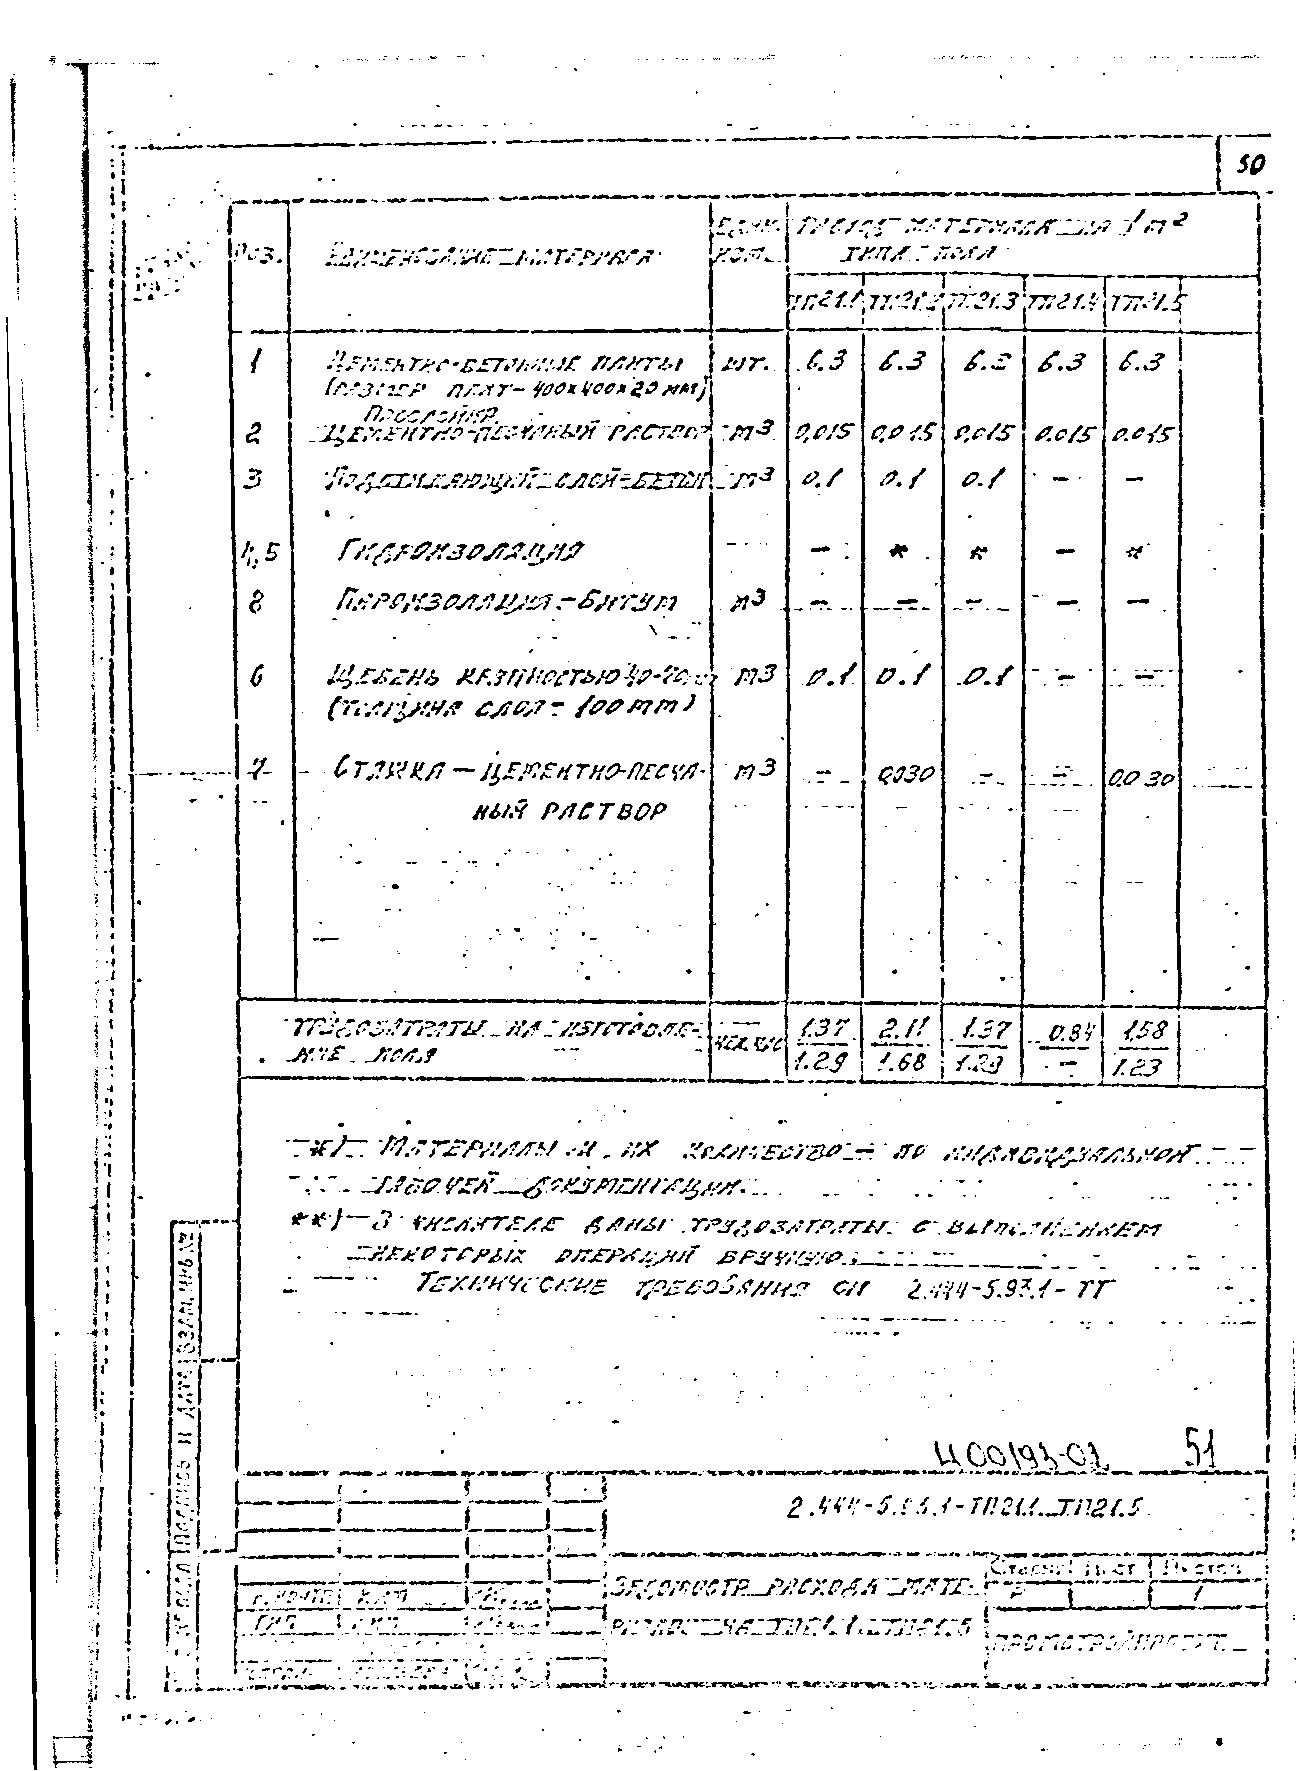 50
Поз. Наименование материала Един. изм. Расход материалов на 1 м² типа пола
ТП21.1 ТП21.2 ТП21.3 ТП21.4 ТП21.5
1 Цементно-бетонные плиты шт. 6.3 6.3 6.2 6.3 6.3
(размер плит-400х400х20 мм)
Прослойка
2 Цементно-песчаный раствор м3 0,015 0,015 0,015 0.015 0.015
3 Подстилающий слой-бетон м3 0.1 0.1 0.1 - -
4,5 Гидроизоляция - * * - *
8 Пароизоляция-битум м3 - - - - -
6 Щебень крупностью 40-70 м3 0.1 0.1 0.1 - -
(толщина слоя - 100 mm)
7 Стяжка - цементно-песча- м3 - 0,030 - - 0.030
ный раствор
Трудозатраты на изготовле- чел.час 1.37 2.11 1.37 0.84 1.58
ние пола 1.29 1.68 1.29 - 1.23
*) Материалы и их количество - по индивидуальной
рабочей документации.
**) В числителе даны трудозатраты с выполнением
некоторых операций вручную.
Технические требования см 2.444-5.93.1-ТТ
Ц00193-02 51
2.444-5.93.1-ТП21.1...ТП21.5
Ведомость расхода мате-
риалов на ТП21.1...ТП21.5
Стадия Лист Листов
Р 1
Подпись и дата Взам.инв.№